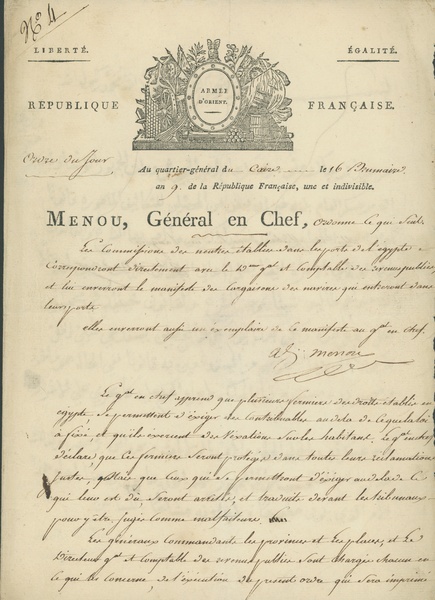 N.º 4
LIBERTÉ.
ÉGALITÉ.
ARMÉE
D'ORIENT.
RÉPUBLIQUE
FRANÇAISE.
Ordre du Jour
Au quartier-général du Caire le 16 Brumaire
an 9. de la République Française, une et indivisible.
MENOU, Général en Chef, ordonne ce qui suit.
Les Commissions des établies dans les ports de l'égypte
Correspondront directement avec le D. gal et Comptable des revenus publics
et lui enverront le manifeste des Cargaisons des navires qui entreront dans
leurs ports.
elles enverront aussi un exemplaire de ce manifeste au gal en chef.
menou
Le gal en chef apprend que plusieurs fermiers des droits établis en
égypte, se permettent d'éxiger des Contribuables au dela de ce que la loi
a fixé, et qu'ils exercent des vexations sur les habitans. Le gal en chef
déclare, que ces fermiers seront protégés dans toutes leurs réclamations
justes, que ceux qui se permettront d'éxiger au dela de ce
qui leur est dû seront arrêtés, et traduits devant les tribunaux
pour y être jugés comme malfaiteurs.
Les généraux Commandants les provinces et les places, et le
Directeur gal et Comptable des revenus publics sont chargés chacun en
ce qui les concerne, de l'éxécution du présent ordre qui sera imprimé